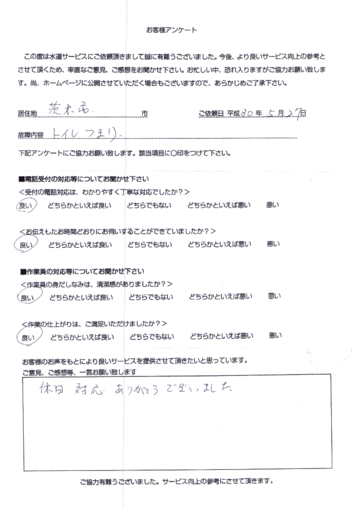 お客様アンケート
この度は水道サービスにご依頼頂きまして誠に有難うございました。今後、より良いサービス向上の参考と
させて頂くため、率直なご意見、ご感想をお聞かせ下さい。お忙しい中、恐れ入りますがご協力お願い致しま
す。尚、ホームページに公開させていただく場合もございますので、あらかじめご了承下さい。
居住地 茨木市 市 ご依頼日 平成30年5月27日
故障内容 トイレつまり
下記アンケートにご協力お願い致します。該当項目に〇印をつけて下さい。
■電話受付の対応等についてお聞かせ下さい
<受付の電話対応は、わかりやすく丁寧な対応でしたか?>
良い どちらかといえば良い どちらでもない どちらかといえば悪い 悪い
<お伝えしたお時間どおりにお伺いすることができていましたか?>
良い どちらかといえば良い どちらでもない どちらかといえば悪い 悪い
■作業員の対応等についてお聞かせ下さい
<作業員の身だしなみは、清潔感がありましたか?>
良い どちらかといえば良い どちらでもない どちらかといえば悪い 悪い
<作業の仕上がりは、ご満足いただけましたか?>
良い どちらかといえば良い どちらでもない どちらかといえば悪い 悪い
お客様のお声をもとにより良いサービスを提供させて頂きたいと思っています。
ご意見、ご感想等、一言お願い致します
休日対応ありがとうございました
ご協力有難うございました。サービス向上の参考にさせて頂きます。